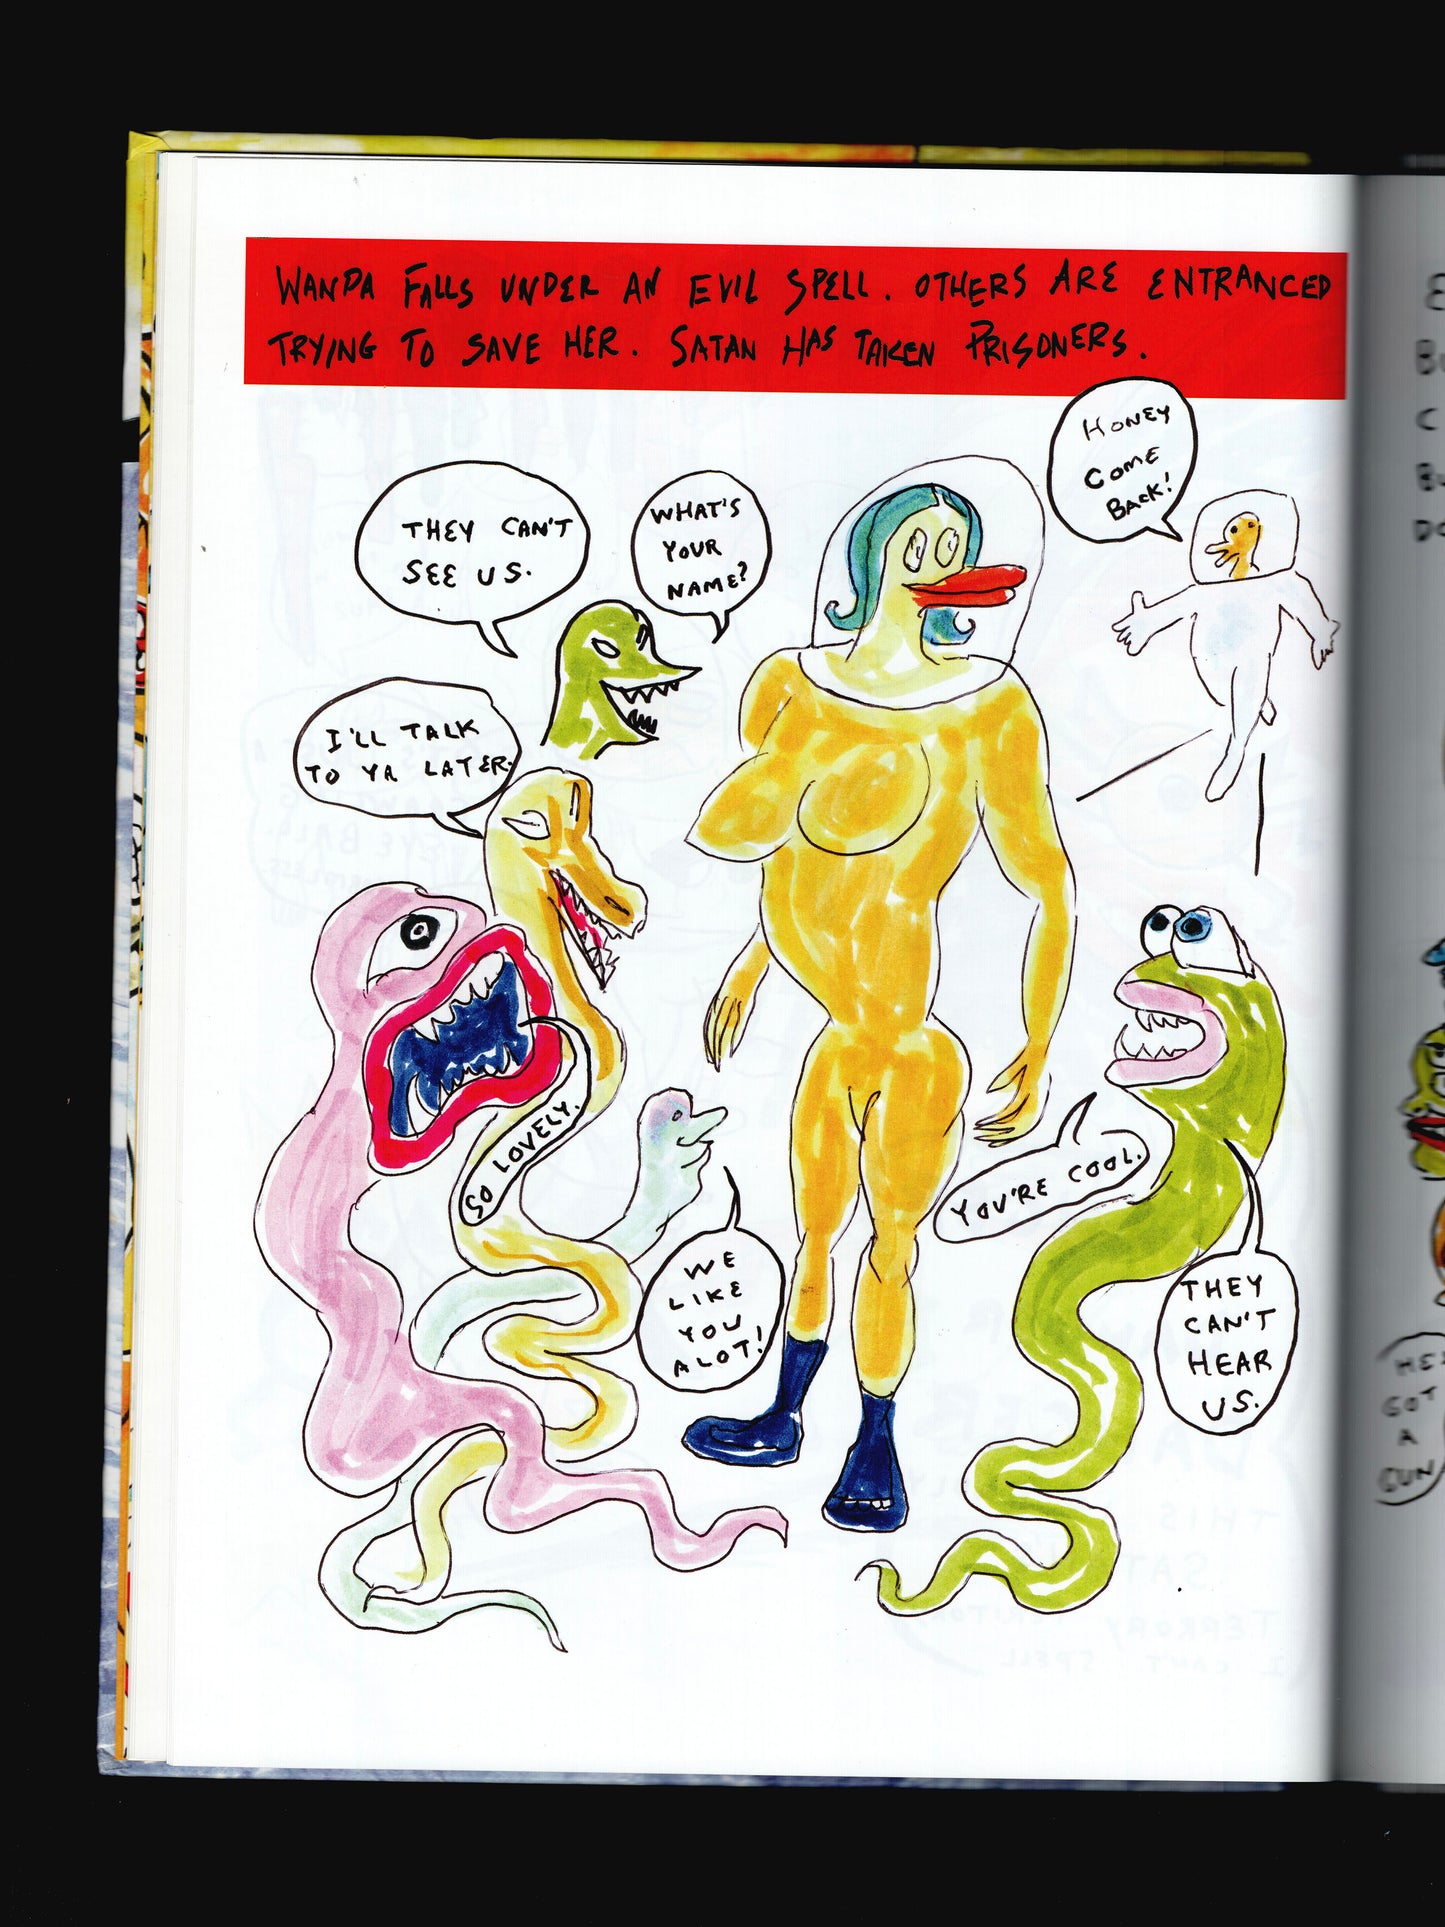 WANDA FALLS UNDER AN EVIL SPELL. OTHERS ARE ENTRANCED
TRYING TO SAVE HER. SATAN HAS TAKEN PRISONERS.
HONEY
COME
BACK!
THEY CAN'T
SEE US.
WHAT'S
YOUR
NAME?
I'LL TALK
TO YA LATER.
SO LOVELY.
YOU'RE COOL.
WE
LIKE
YOU
ALOT!
THEY
CAN'T
HEAR
US.
GOT
A
GUN